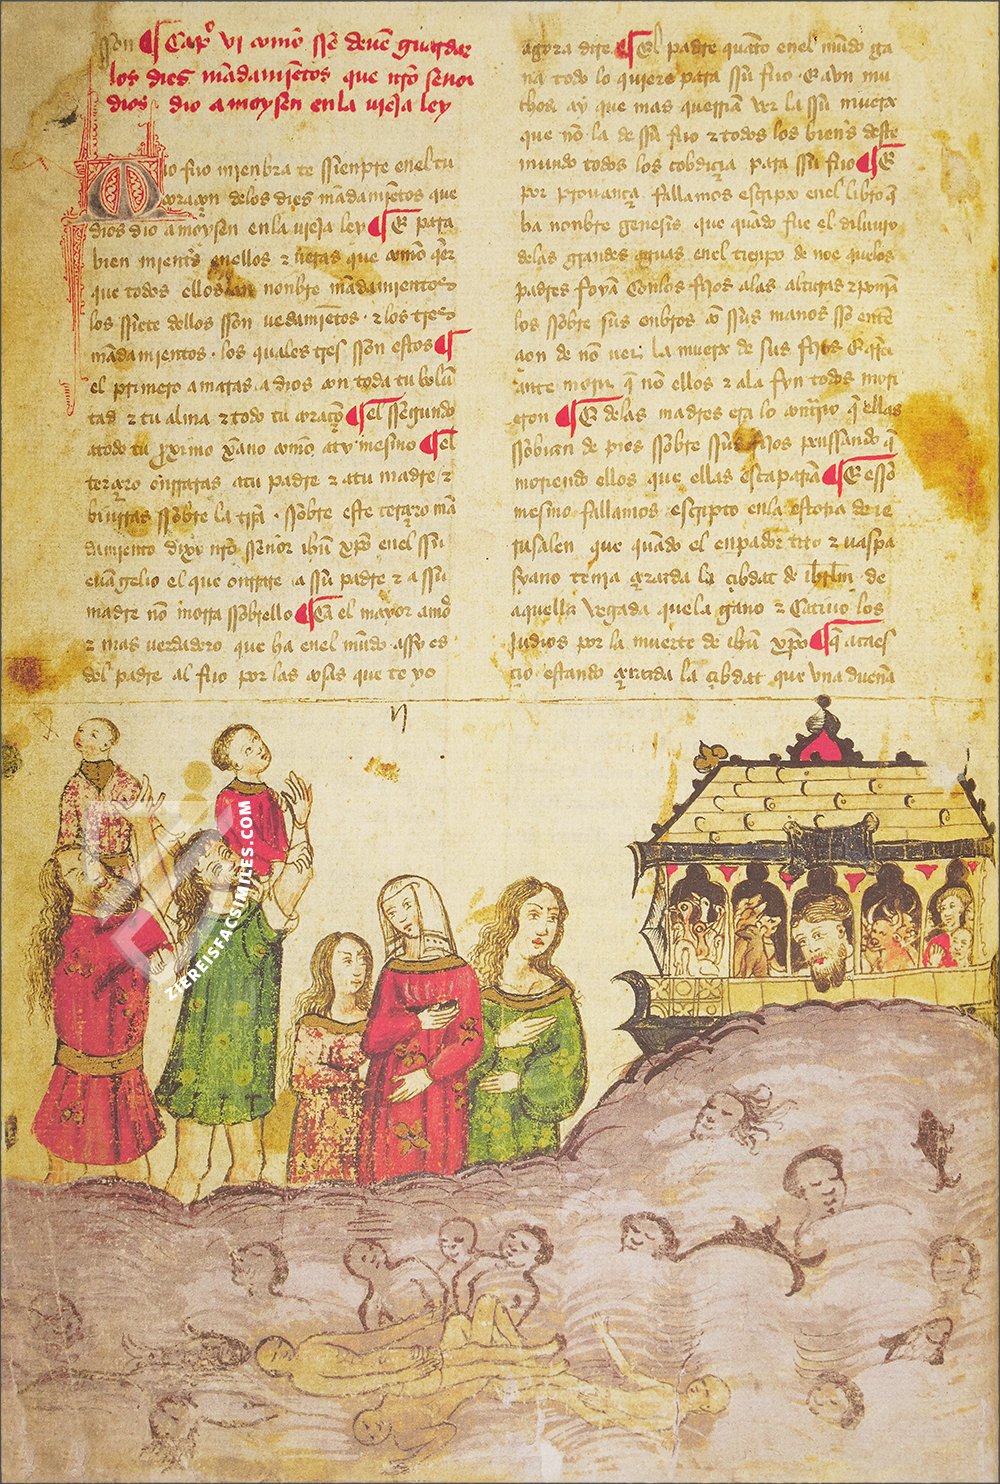 sson ¶ Capº vi como sse deuẽ guardar
los dies mãdamiẽtos que nr̃o señor
dios dio a moysen en la uieja ley
Mio fijo mienbra te ssienpre en el tu
coraçon delos dies mãdamiẽtos que
dios dio a moysen en la uieja ley ¶ E para
bien mientes en ellos z veras que como q̃er
que todos ellos an nonbre mãdamientos
los ssiete dellos sson vedamiẽtos z los tres
mãdamientos los quales tres sson estos ¶
el primero amaras a dios con toda tu volũ
tad z tu alma z todo tu coraçõ ¶ el ssegundo
atodo tu proximo xp̃ano como aty mesmo ¶ el
terçero onrraras atu padre z atu madre z
biuiras ssobre la trr̃a ssobre este terçero mã
damiento dixo nr̃o sseñor ihũ xp̃o en el ssu
euãgelio el que onrrare a ssu padre z a ssu
madre nõ morra ssobrello ¶ Ca el mayor amor
z mas verdadero que ha en el mũdo assy es
del padre al fijo por las cosas que te yo
agora dire ¶ El padre quãto en el mũdo ga
na todo lo quiere para ssu fijo E avn mu
chos ay que mas querriã ver la ssu muerte
que nõ la de ssu fijo z todos los bienes deste
mundo todos los cobdiçia para ssu fijo ¶ E
por prouança fallamos escripto en el libro q̃
ha nonbre genesis que quãdo fue el diluuio
delas grandes aguas en el tienpo de noe quelos
padres foyan conlos fijos alas alturas z poniã
los ssobre sus onbros con ssus manos
nõ ver la muerte de sus fijos E
ante morir q̃ nõ ellos z ala fyn todos mori
eron ¶ E delas madres era lo contrario q̃ ellas
ssobian de pies ssobre ssus fijos penssando q̃
moriendo ellos que ellas escaparia ¶ E esso
mesmo fallamos escripto en la estoria de je
rusalen que quãdo el enperador tito z vaspa
syano tenia çercada la çibdat de ihrl̃m de
aquella vegada quela gano z catiuo los
judios por la muerte de ihũ xp̃o ¶ q̃ acaes
çio estando çercada la çibdat que vna dueña
ZIEREISFACSIMILES.COM